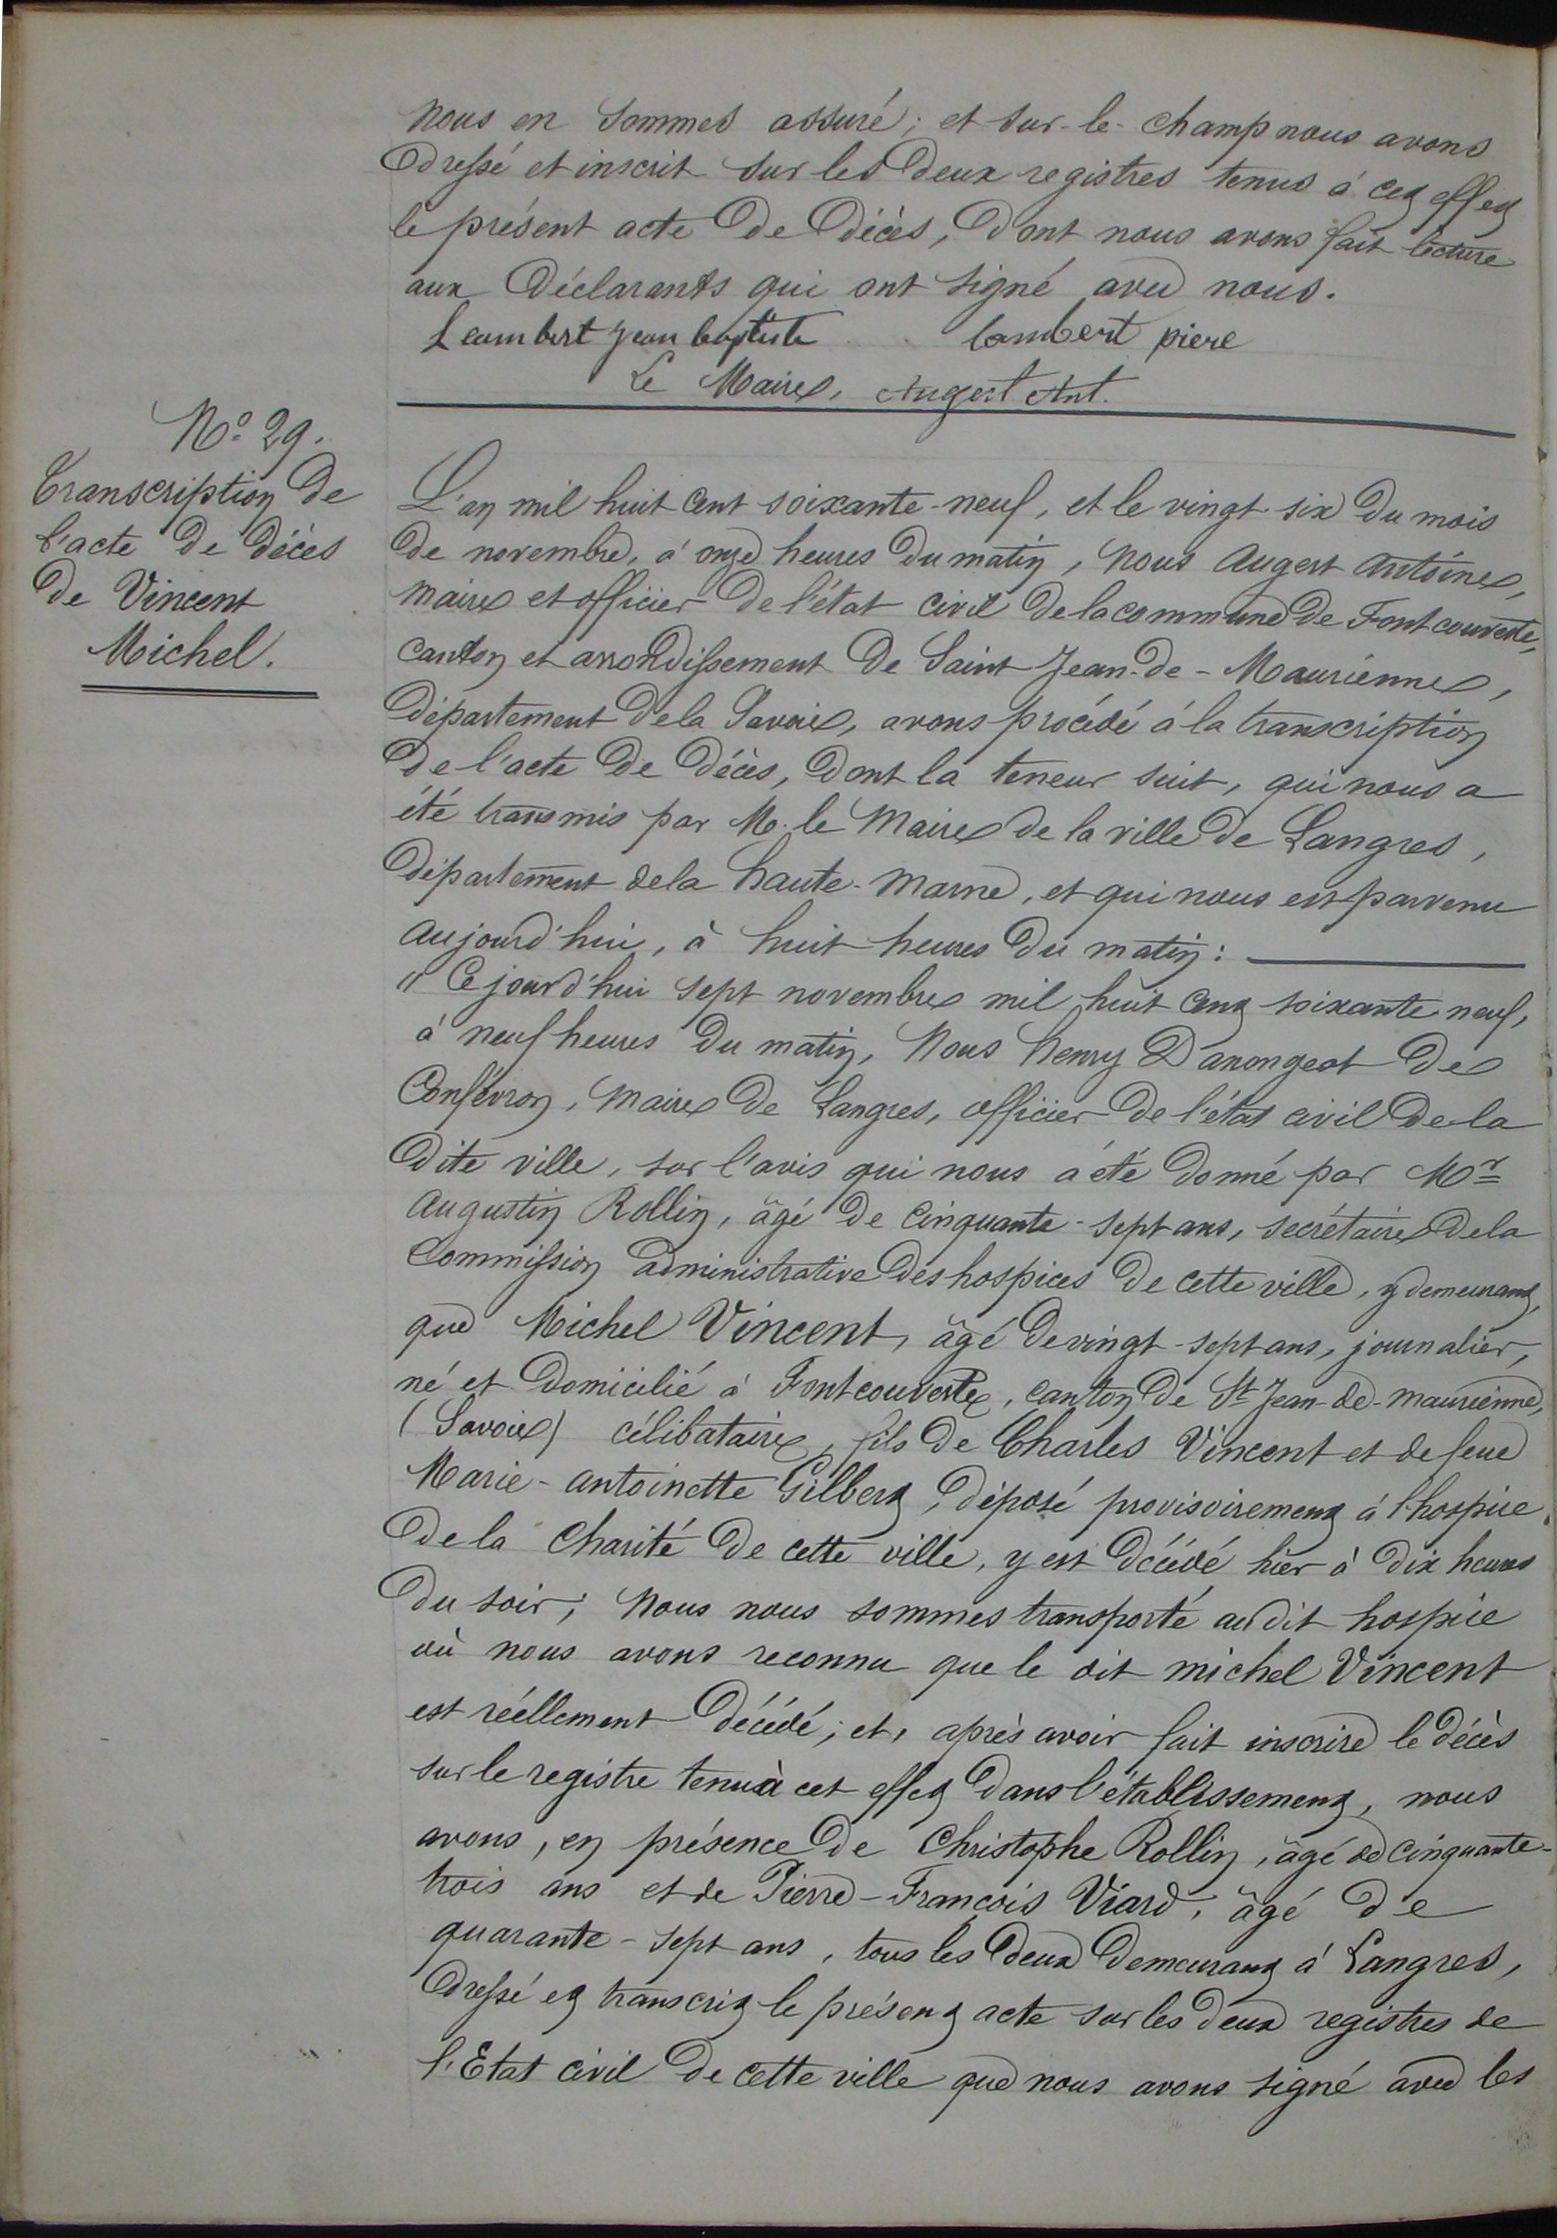 Nous en sommes assuré; et sur-le-champ nous avons
dressé et inscrit sur les deux registres tenus à cet effet
le présent acte de décès, dont nous avons fait lecture
aux déclarants qui ont signé avec nous.
Leambert Jean baptiste lambert piere
Le Maire, Augert Ant.
N° 29.
Transcription de
l'acte de décès
de Vincent
Michel.
L'an mil huit cent soixante-neuf, et le vingt-six du mois
de novembre, à onze heures du matin, Nous Augert Antoine,
Maire et officier de l'état civil de la commune de Fontcouverte,
canton et arrondissement de Saint Jean-de-Maurienne,
Département de la Savoie, avons procédé à la transcription
de l'acte de décès, dont la teneur suit, qui nous a
été transmis par M. le Maire de la ville de Langres,
Département de la haute-Marne, et qui nous est parvenu
aujourd'hui, à huit heures du matin:
"Cejourd'hui sept novembre mil huit cent soixante neuf,
à neuf heures du matin, Nous henry Darongeot de
Confévron, Maire de Langres, officier de l'état civil de la
dite ville, sur l'avis qui nous a été donné par Mr
Augustin Rollin, âgé de cinquante-sept ans, secrétaire de la
Commission administrative des hospices de cette ville, y demeurant,
que Michel Vincent, âgé de vingt-sept ans, journalier,
né et domicilié à Fontcouverte, canton de St Jean-de-Maurienne,
(Savoie) célibataire, fils de Charles Vincent et de feue
Marie-Antoinette Gilbert, déposé provisoirement à l'hospice
de la Charité de cette ville, y est décédé hier à dix heures
du soir; Nous nous sommes transporté audit hospice
où nous avons reconnu que le dit michel Vincent
est réellement décédé; et, après avoir fait inscrire le décès
sur le registre tenu à cet effet dans l'établissement, nous
avons, en présence de Christophe Rollin, âgé de cinquante-
trois ans et de Pierre-François Viard, âgé de
quarante-sept ans, tous les deux demeurant à Langres,
dressé et transcrit le présent acte sur les deux registres de
l'Etat civil de cette ville que nous avons signé avec les